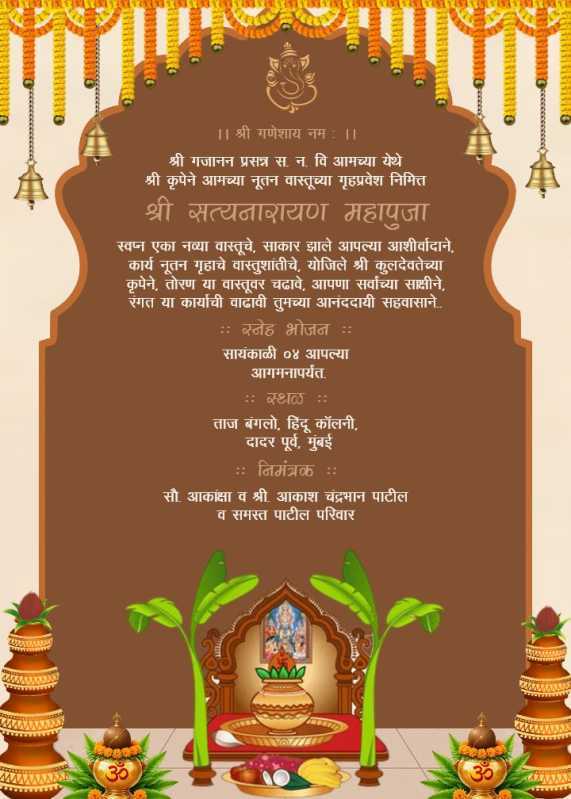 ।। श्री गणेशाय नम : ।।
श्री गजानन प्रसन्न स. न. वि आमच्या येथे
श्री कृपेने आमच्या नूतन वास्तूच्या गृहप्रवेश निमित्त
श्री सत्यनारायण महापुजा
स्वप्न एका नव्या वास्तूचे, साकार झाले आपल्या आशीर्वादाने,
कार्य नूतन गृहाचे वास्तुशांतीचे, योजिले श्री कुलदेवतेच्या
कृपेने, तोरण या वास्तूवर चढावे, आपणा सर्वांच्या साक्षीने,
रंगत या कार्याची वाढावी तुमच्या आनंददायी सहवासाने..
:: स्नेह भोजन ::
सायंकाळी ०४ आपल्या
आगमनापर्यंत.
:: स्थळ ::
ताज बंगलो, हिंदू कॉलनी,
दादर पूर्व, मुंबई
:: निमंत्रक ::
सौ. आकांक्षा व श्री. आकाश चंद्रभान पाटील
व समस्त पाटील परिवार
ॐ
ॐ